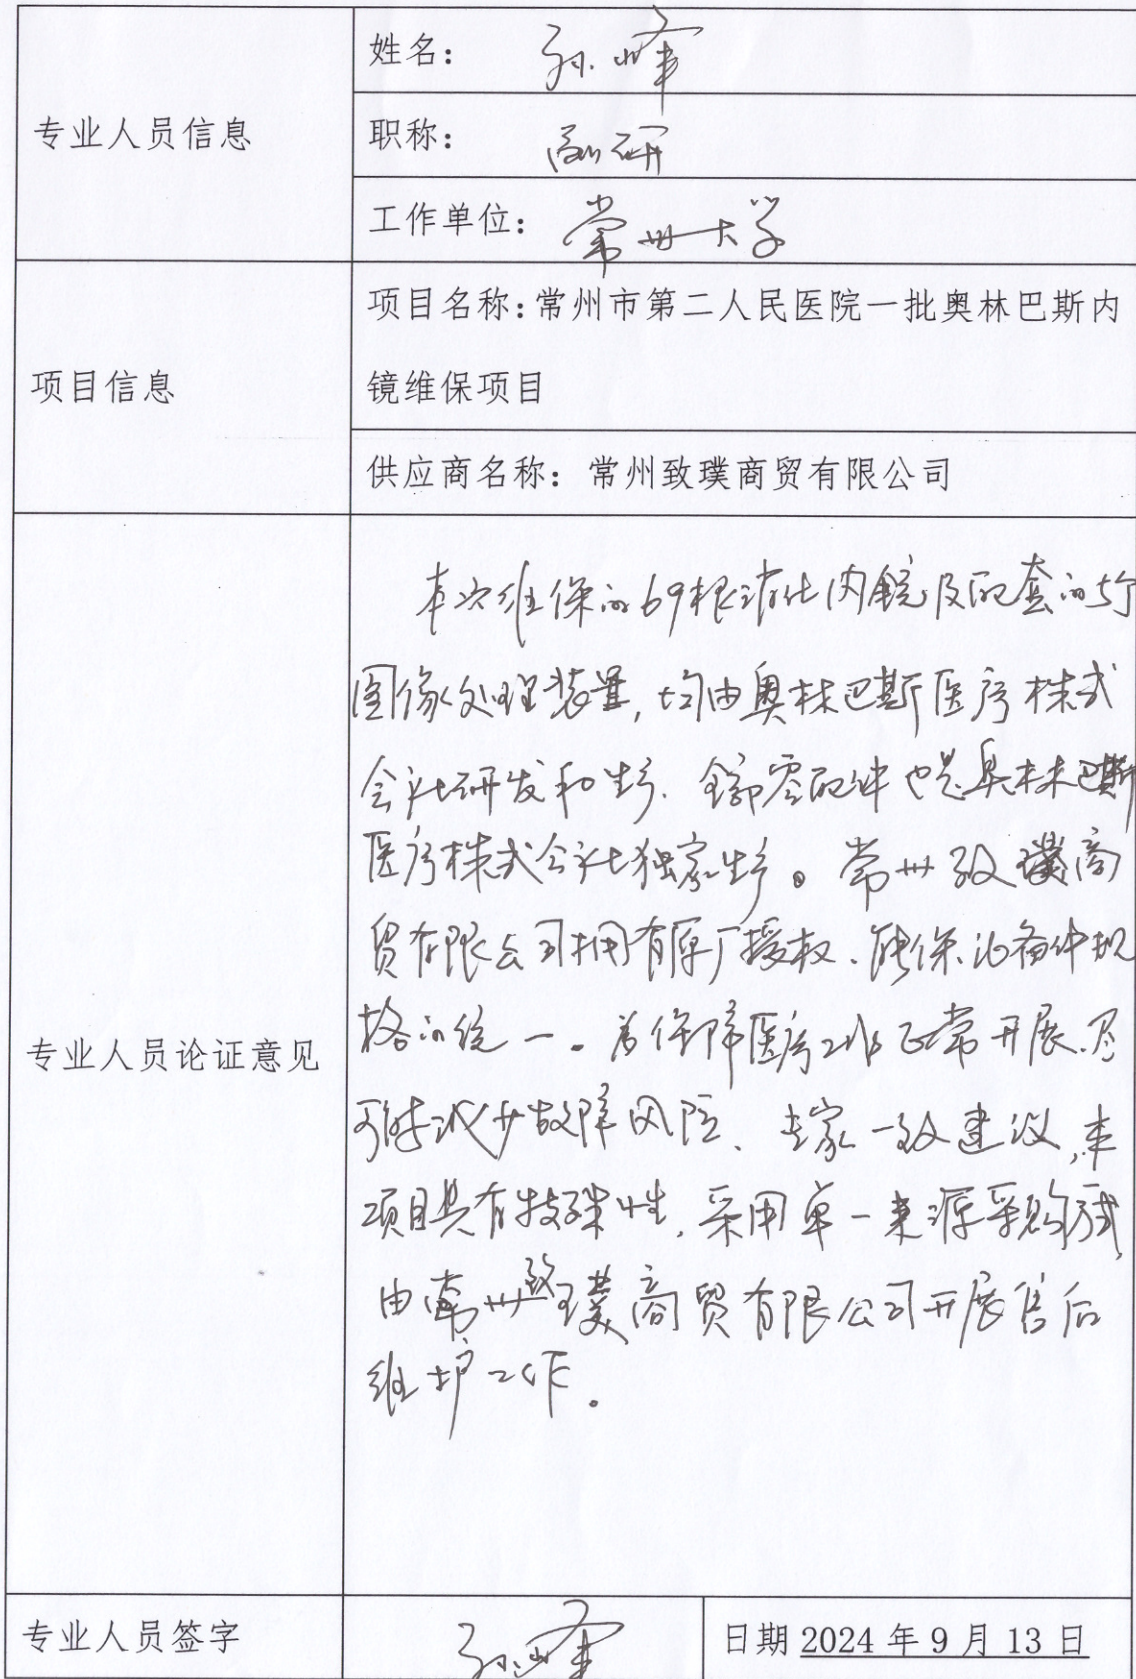 专业人员信息
姓名：孙峰
职称：副研
工作单位：常州大学
项目信息
项目名称：常州市第二人民医院一批奥林巴斯内
镜维保项目
供应商名称：常州致璞商贸有限公司
专业人员论证意见
本次维保的69根消化内镜及配套的5台
图像处理装置，均由奥林巴斯医疗株式
会社研发和生产、全部零配件也是奥林巴斯
医疗株式会社独家生产。常州致璞商
贸有限公司拥有原厂授权、能保证备件规
格的统一。为保障医疗工作正常开展、尽
可能减少故障风险、专家一致建议，本
项目具有特殊性，采用单一来源采购方式，
由常州致璞商贸有限公司开展售后
维护工作。
专业人员签字
孙峰
日期 2024 年 9 月 13 日